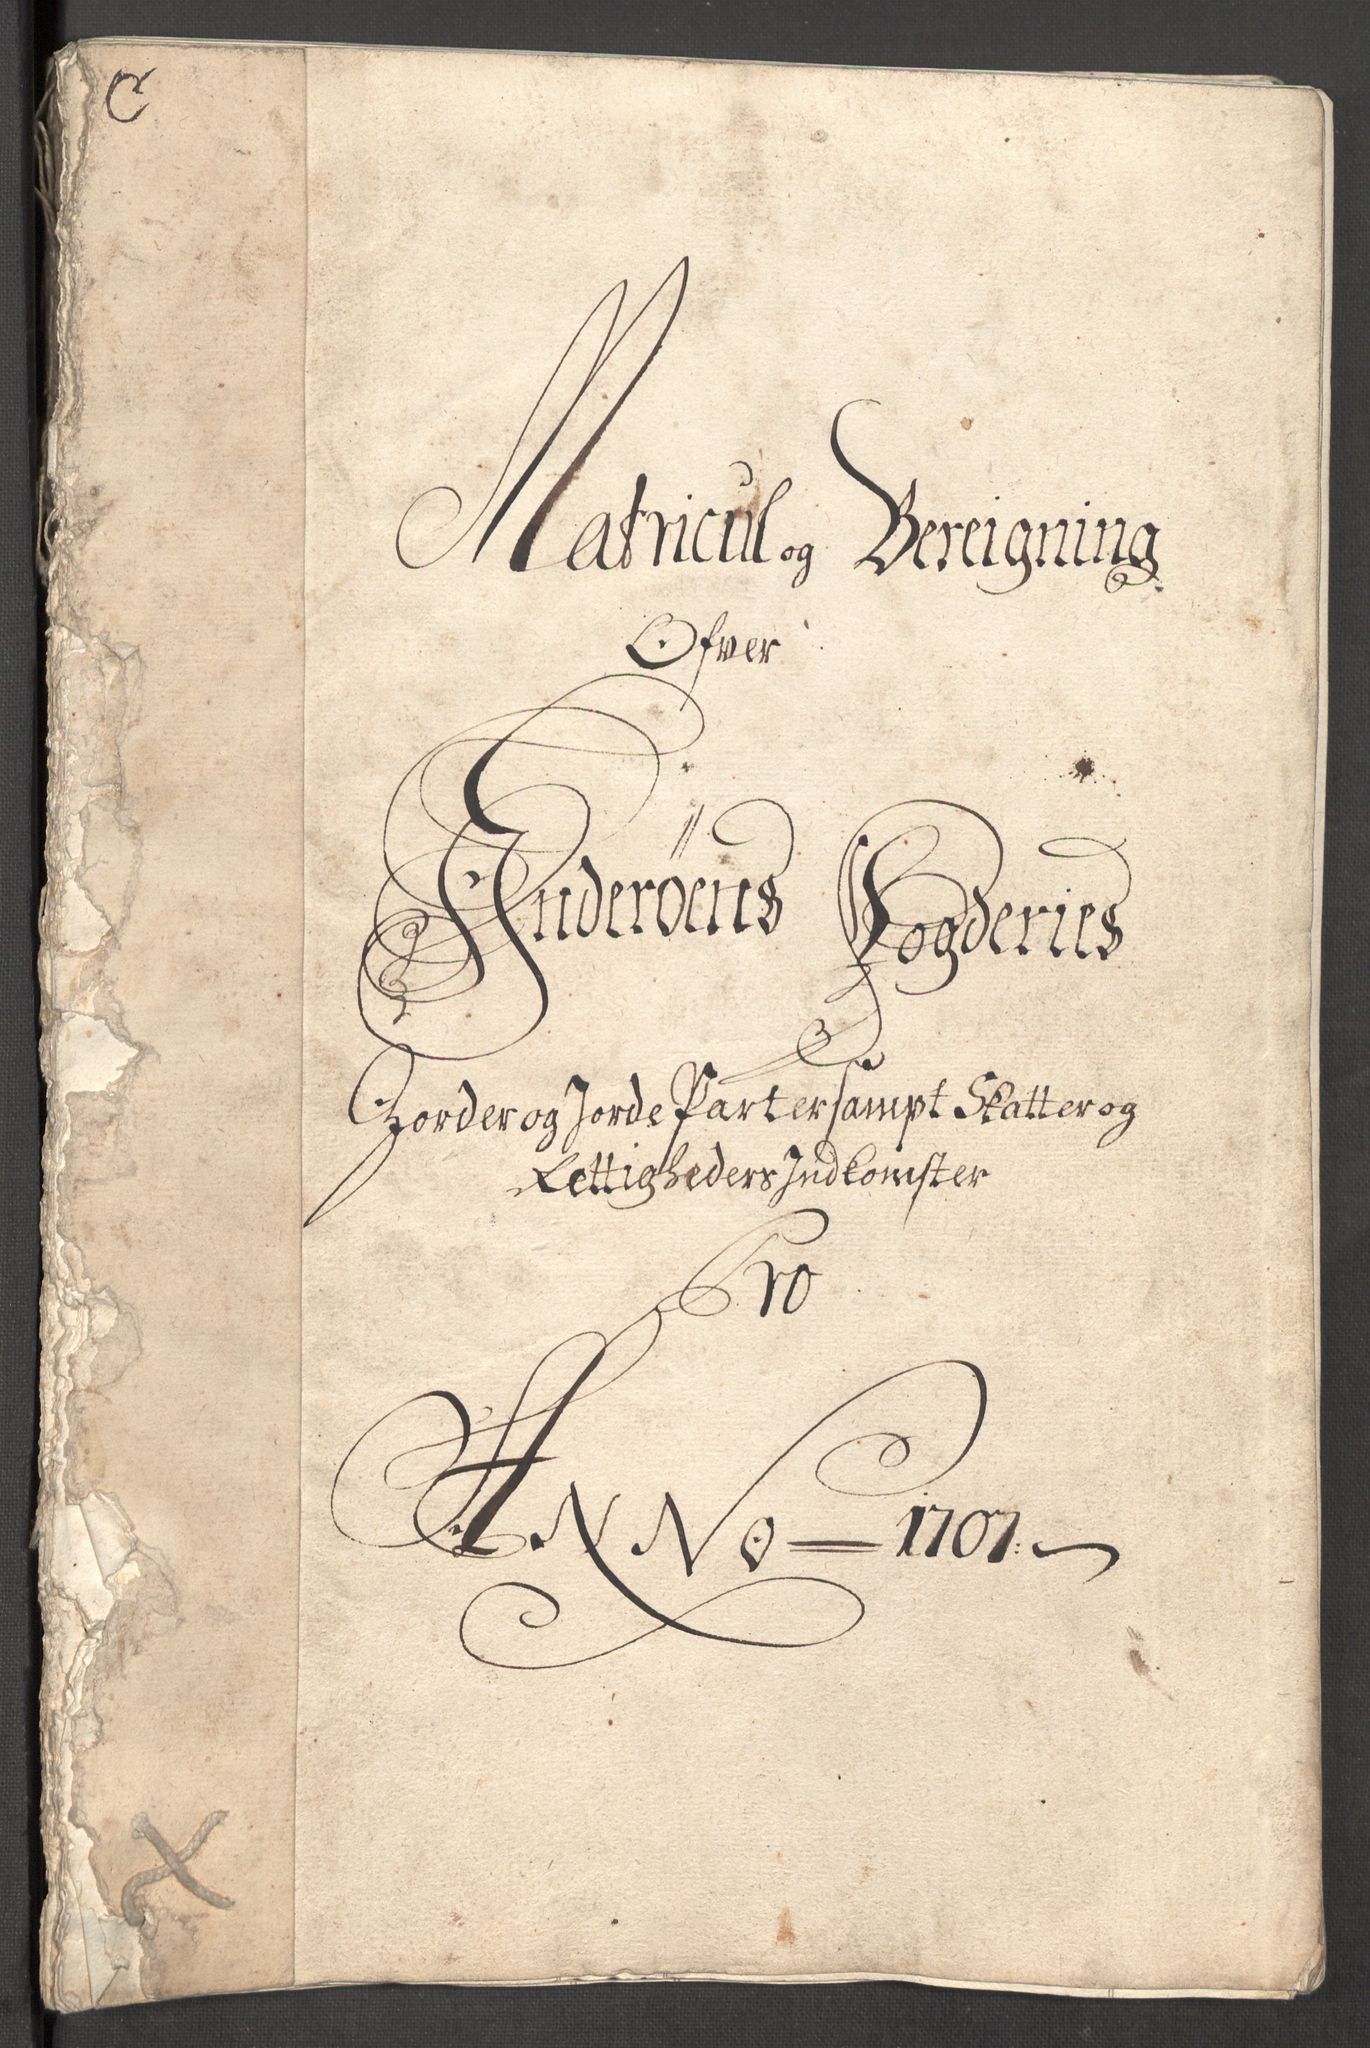 C
Matricul og Bereigning
Ofver
Inderöens Fogderies
Jorder og Jorde Parter sampt Skatter og
Rettigheders Indkomster
Pro
ANNO — 1707.